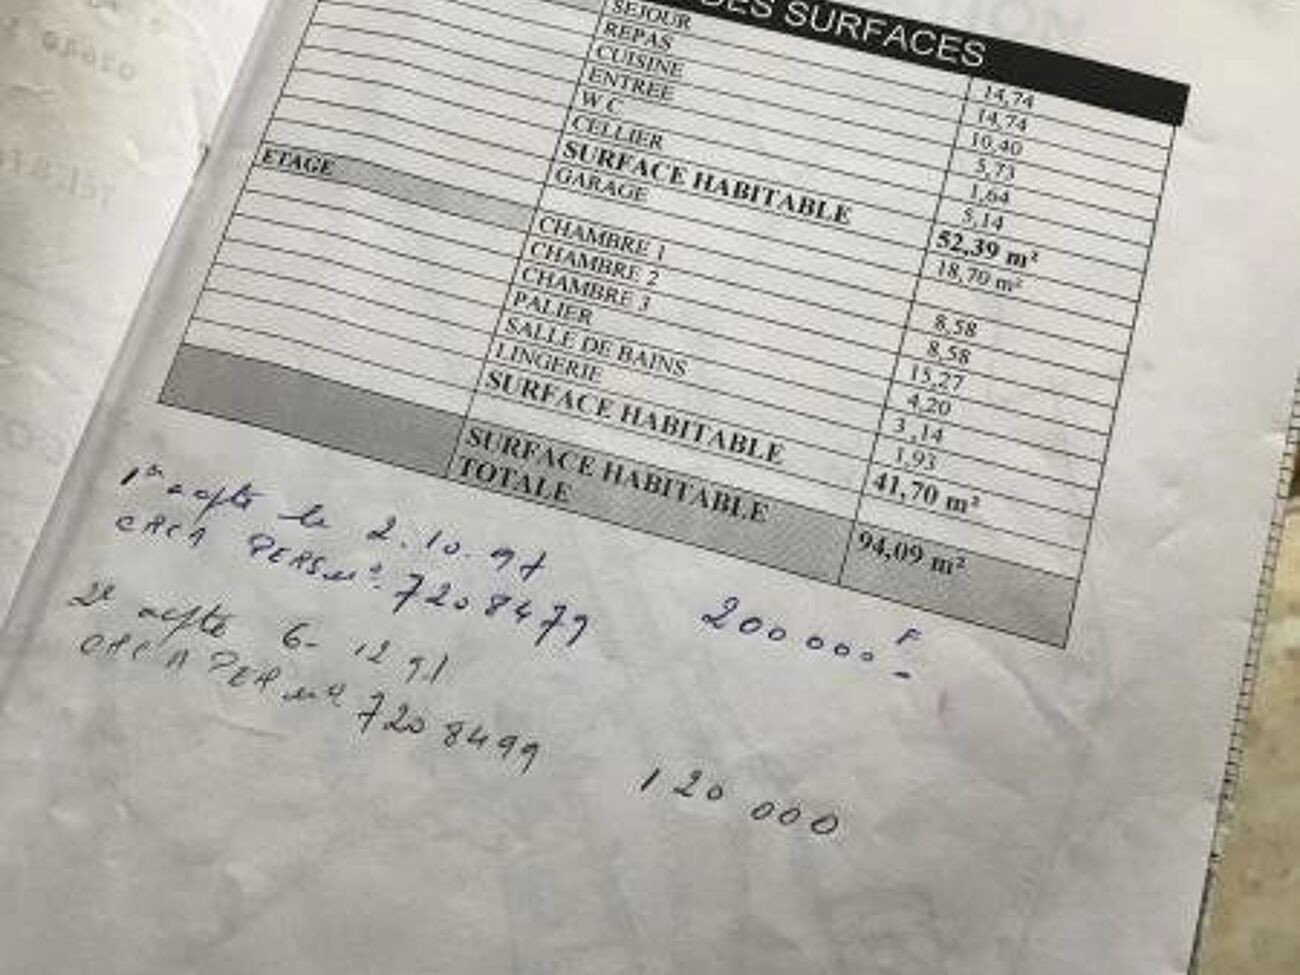 DES SURFACES
SEJOUR 14,74
REPAS 14,74
CUISINE 10,40
ENTREE 5,73
W C 1,64
CELLIER 5,14
SURFACE HABITABLE 52,39 m²
GARAGE 18,70 m²
ETAGE
CHAMBRE 1 8,58
CHAMBRE 2 8,58
CHAMBRE 3 15,27
PALIER 4,20
SALLE DE BAINS 3,14
LINGERIE 1,93
SURFACE HABITABLE 41,70 m²
SURFACE HABITABLE
TOTALE 94,09 m²
le 2.10.97
CRCA PERS n° 7208479 200000 F
2e 6- 12 91
CRCA PER n° 7208499 120 000